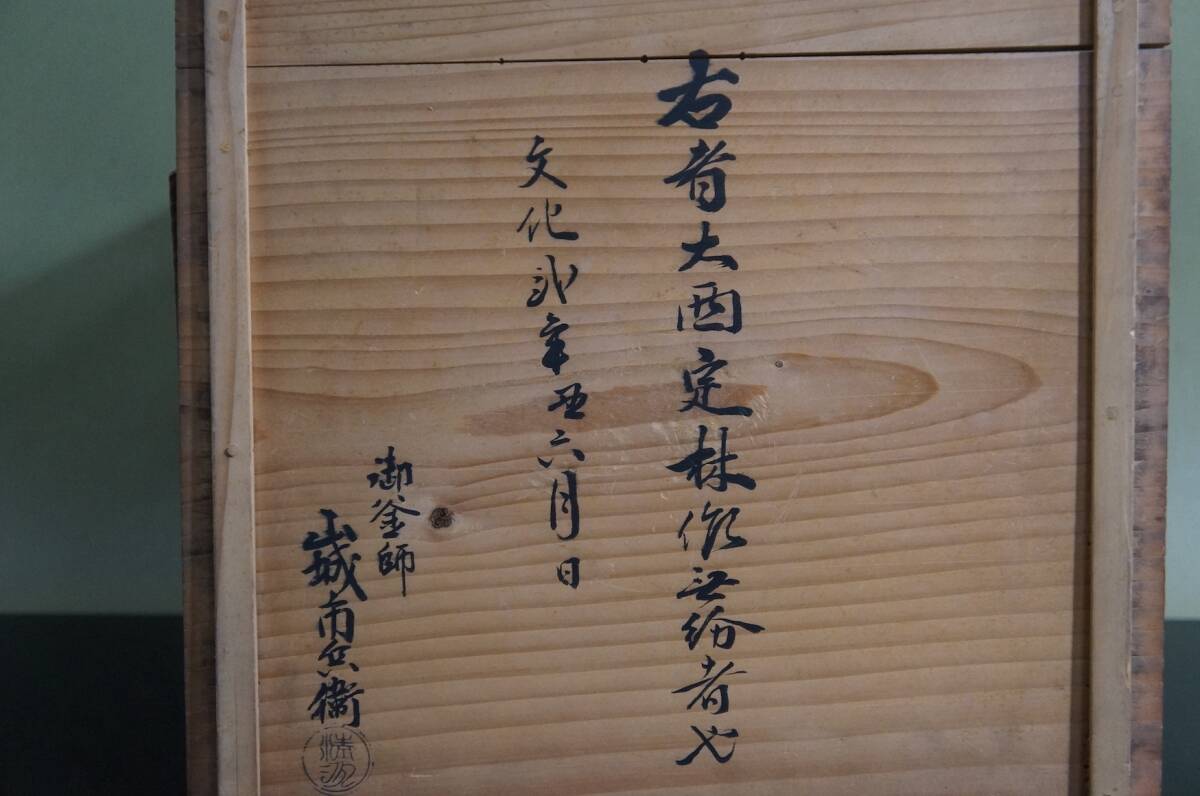 右者大西定林作無紛者也
文化弐年丑六月日
御釜師
山城市兵衛